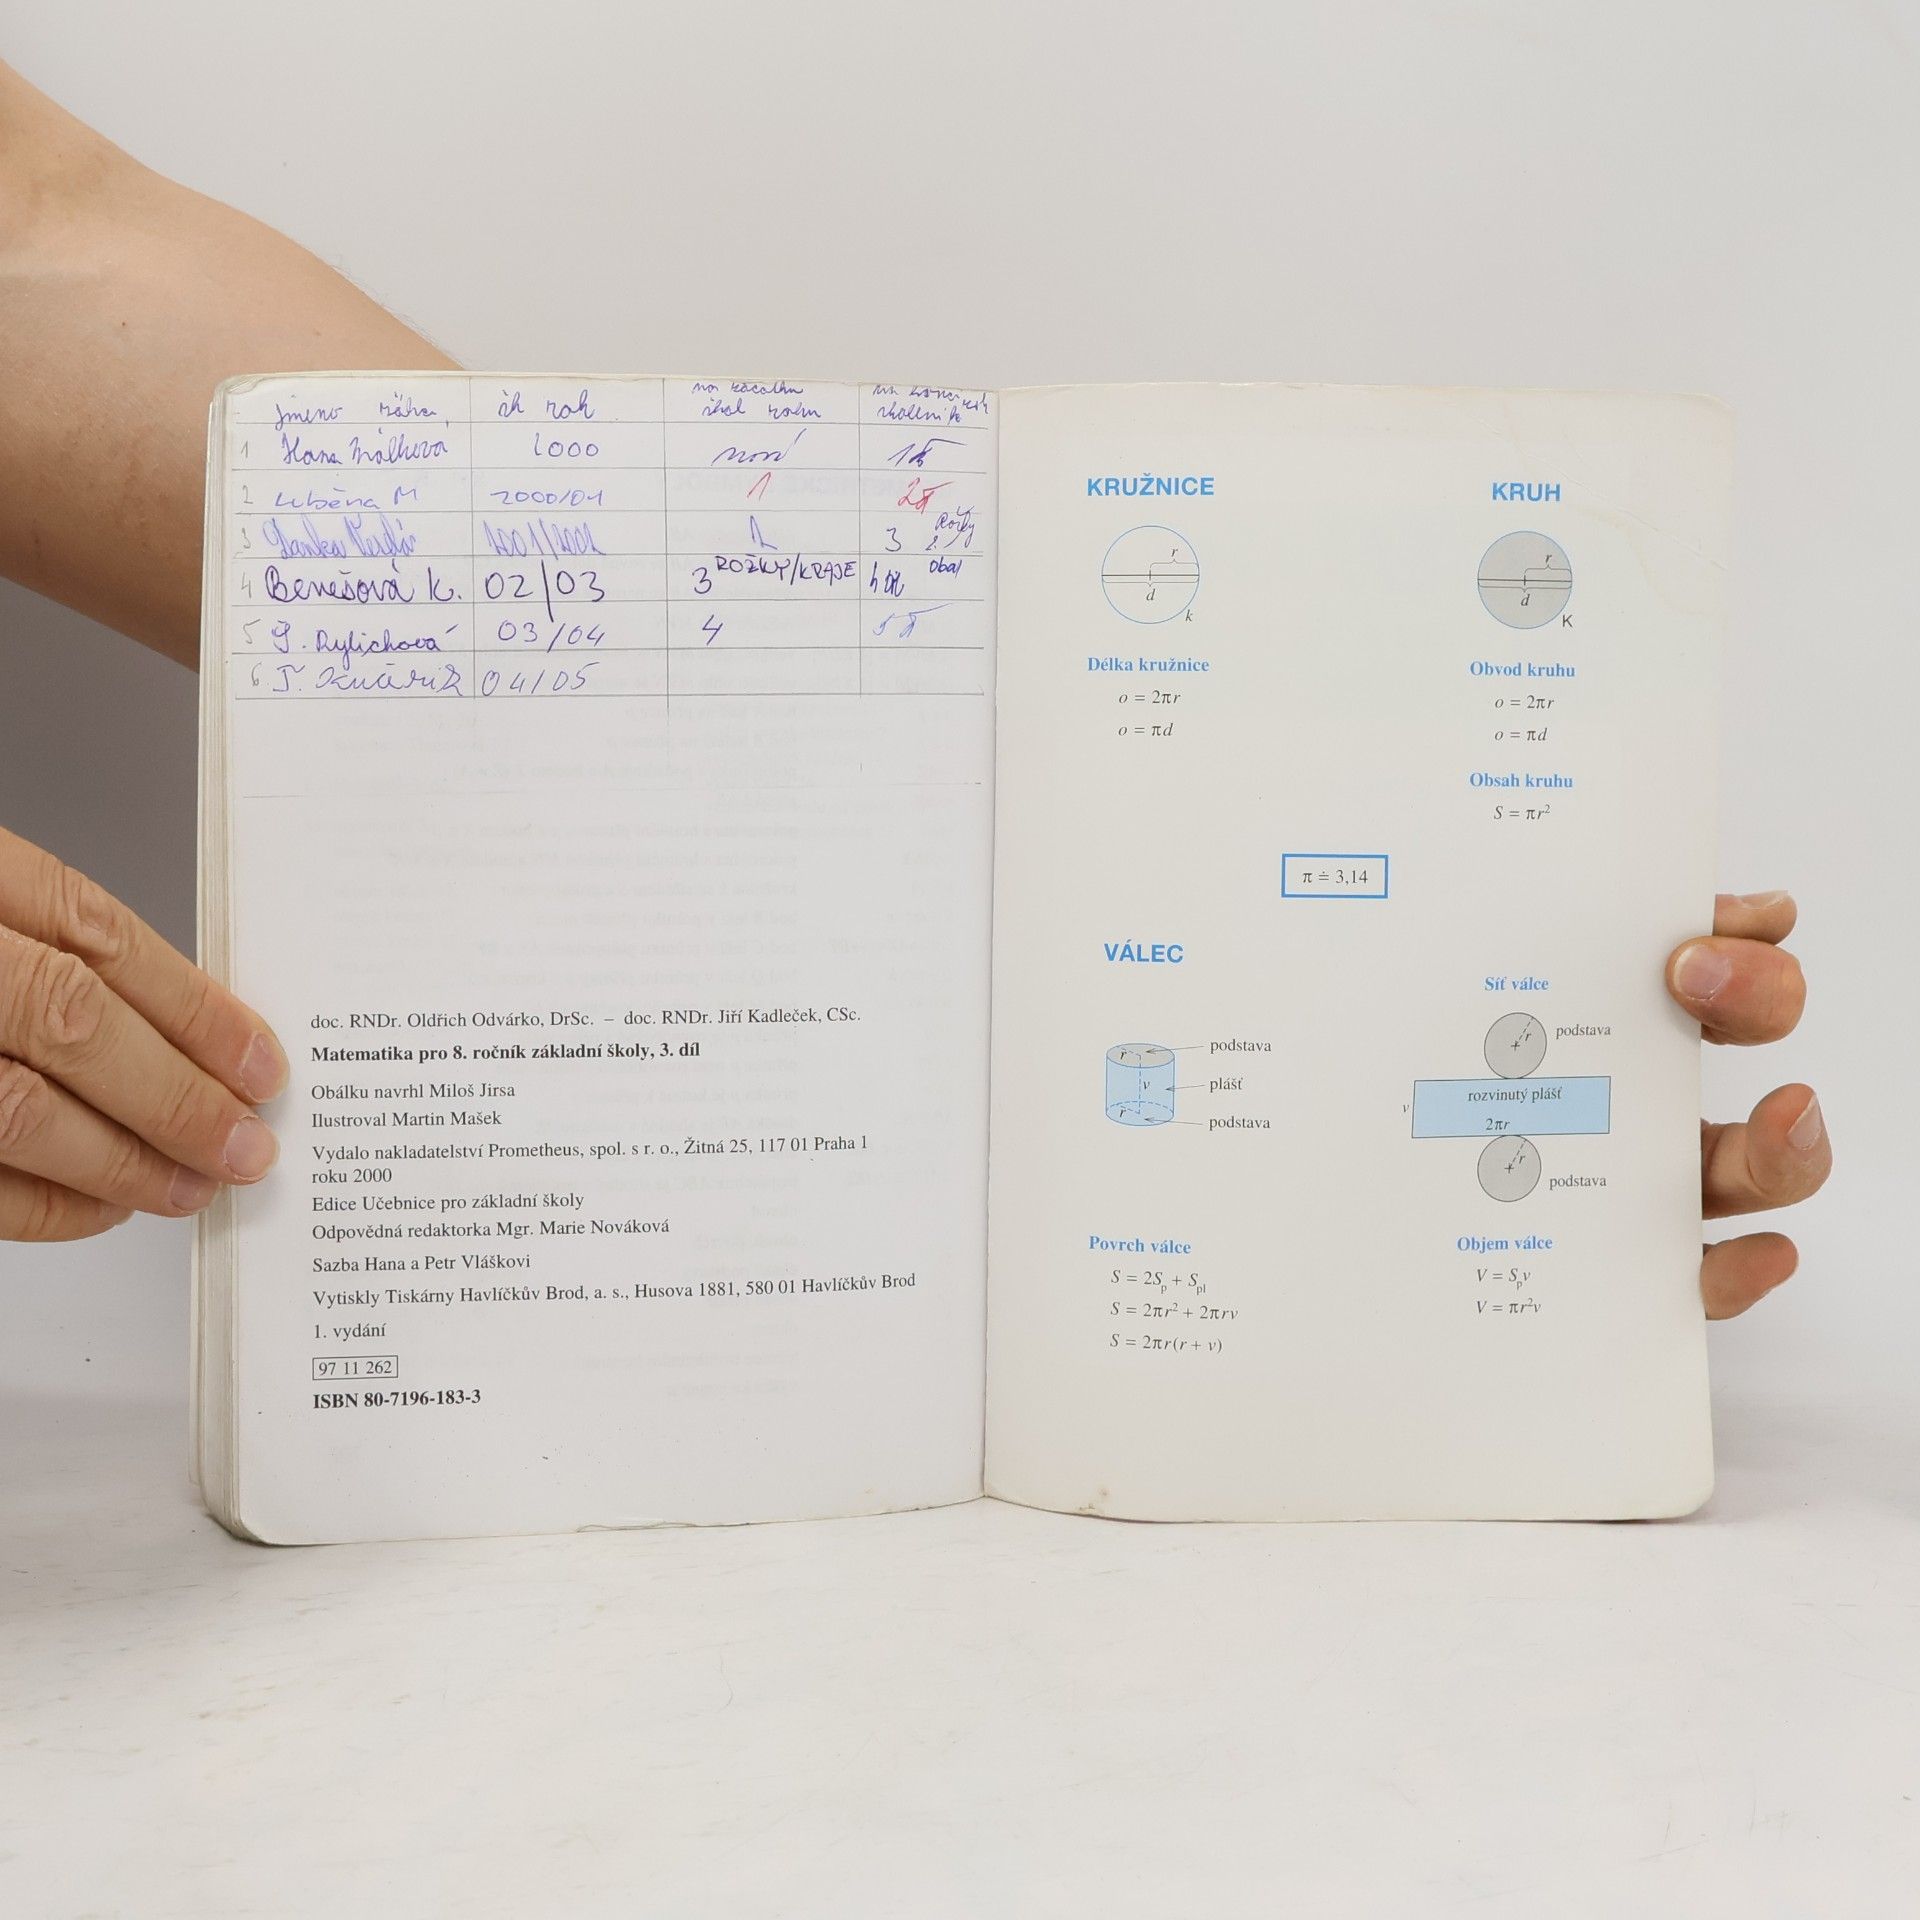 jméno žáka šk rok na začátku škol roku
1 Hana 2000 1
2 Luběna M 2000/01 1 2
3 Lanka 2001/2002 2 3 Rožky
4 Benešová K. 02/03 3 ROŽKY/KRAJE obal
5 03/04 4 5
6. 04/05
doc. RNDr. Oldřich Odvárko, DrSc. – doc. RNDr. Jiří Kadleček, CSc.
Matematika pro 8. ročník základní školy, 3. díl
Obálku navrhl Miloš Jirsa
Ilustroval Martin Mašek
Vydalo nakladatelství Prometheus, spol. s r. o., Žitná 25, 117 01 Praha 1
roku 2000
Edice Učebnice pro základní školy
Odpovědná redaktorka Mgr. Marie Nováková
Sazba Hana a Petr Vláškovi
Vytiskly Tiskárny Havlíčkův Brod, a. s., Husova 1881, 580 01 Havlíčkův Brod
1. vydání
97 11 262
ISBN 80-7196-183-3
KRUŽNICE
r
d
k
Délka kružnice
o = 2πr
o = πd
KRUH
r
d
K
Obvod kruhu
o = 2πr
o = πd
Obsah kruhu
S = πr²
π ≐ 3,14
VÁLEC
r
v
r
podstava
plášť
podstava
Síť válce
r
podstava
rozvinutý plášť
v
2πr
r
podstava
Povrch válce
S = 2Sₚ + Sₚₗ
S = 2πr² + 2πrv
S = 2πr(r + v)
Objem válce
V = Sₚv
V = πr²v